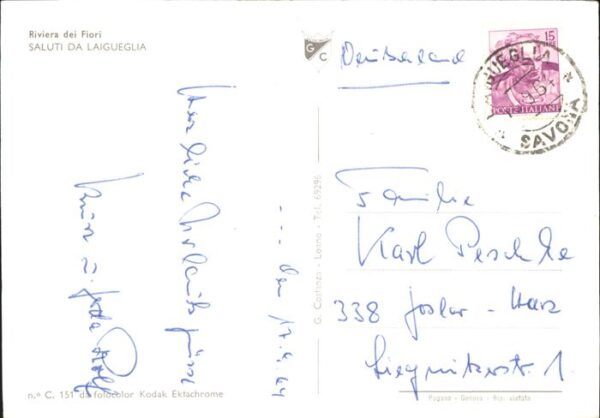 Riviera dei Fiori
SALUTI DA LAIGUEGLIA
Herzliche Urlaubsgrüsse
... den 17.9.64
G C
Deutschland
15
POSTE ITALIANE
LAIGUEGLIA
SAVONA
Familie
Karl Peschke
338 Goslar - Harz
Liegnitzerstr. 1.
G. Costanza - Loano - Tel. 69296
n.º C. 151 da fotocolor Kodak Ektachrome
Pagano - Genova - Rip. vietata